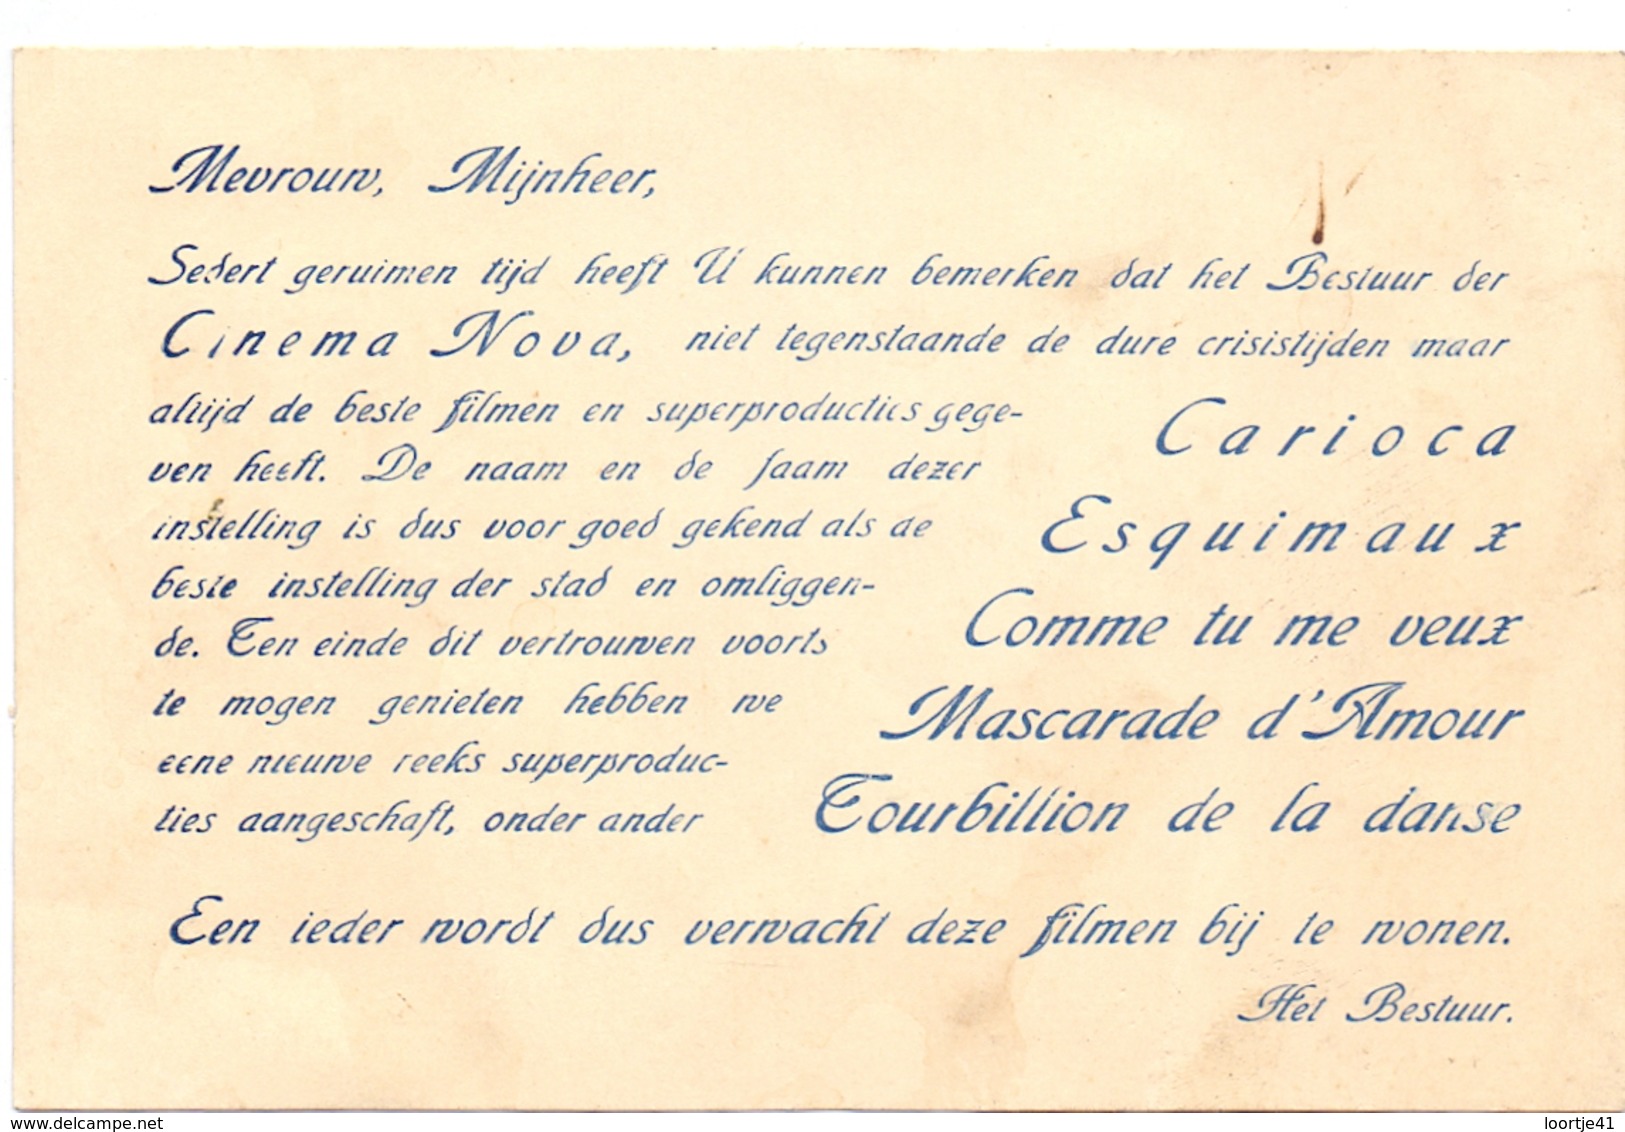 Mevrouw, Mijnheer,
Sedert geruimen tijd heeft U kunnen bemerken dat het Bestuur der
Cinema Nova, niet tegenstaande de dure crisistijden maar
altijd de beste filmen en superproducties gege-
ven heeft. De naam en de faam dezer
instelling is dus voor goed gekend als de
beste instelling der stad en omliggen-
de. Ten einde dit vertrouwen voorts
te mogen genieten hebben we
eene nieuwe reeks superproduc-
ties aangeschaft, onder ander
Carioca
Esquimaux
Comme tu me veux
Mascarade d'Amour
Tourbillion de la danse
Een ieder wordt dus verwacht deze filmen bij te wonen.
Het Bestuur.
www.delcampe.net
loortje41